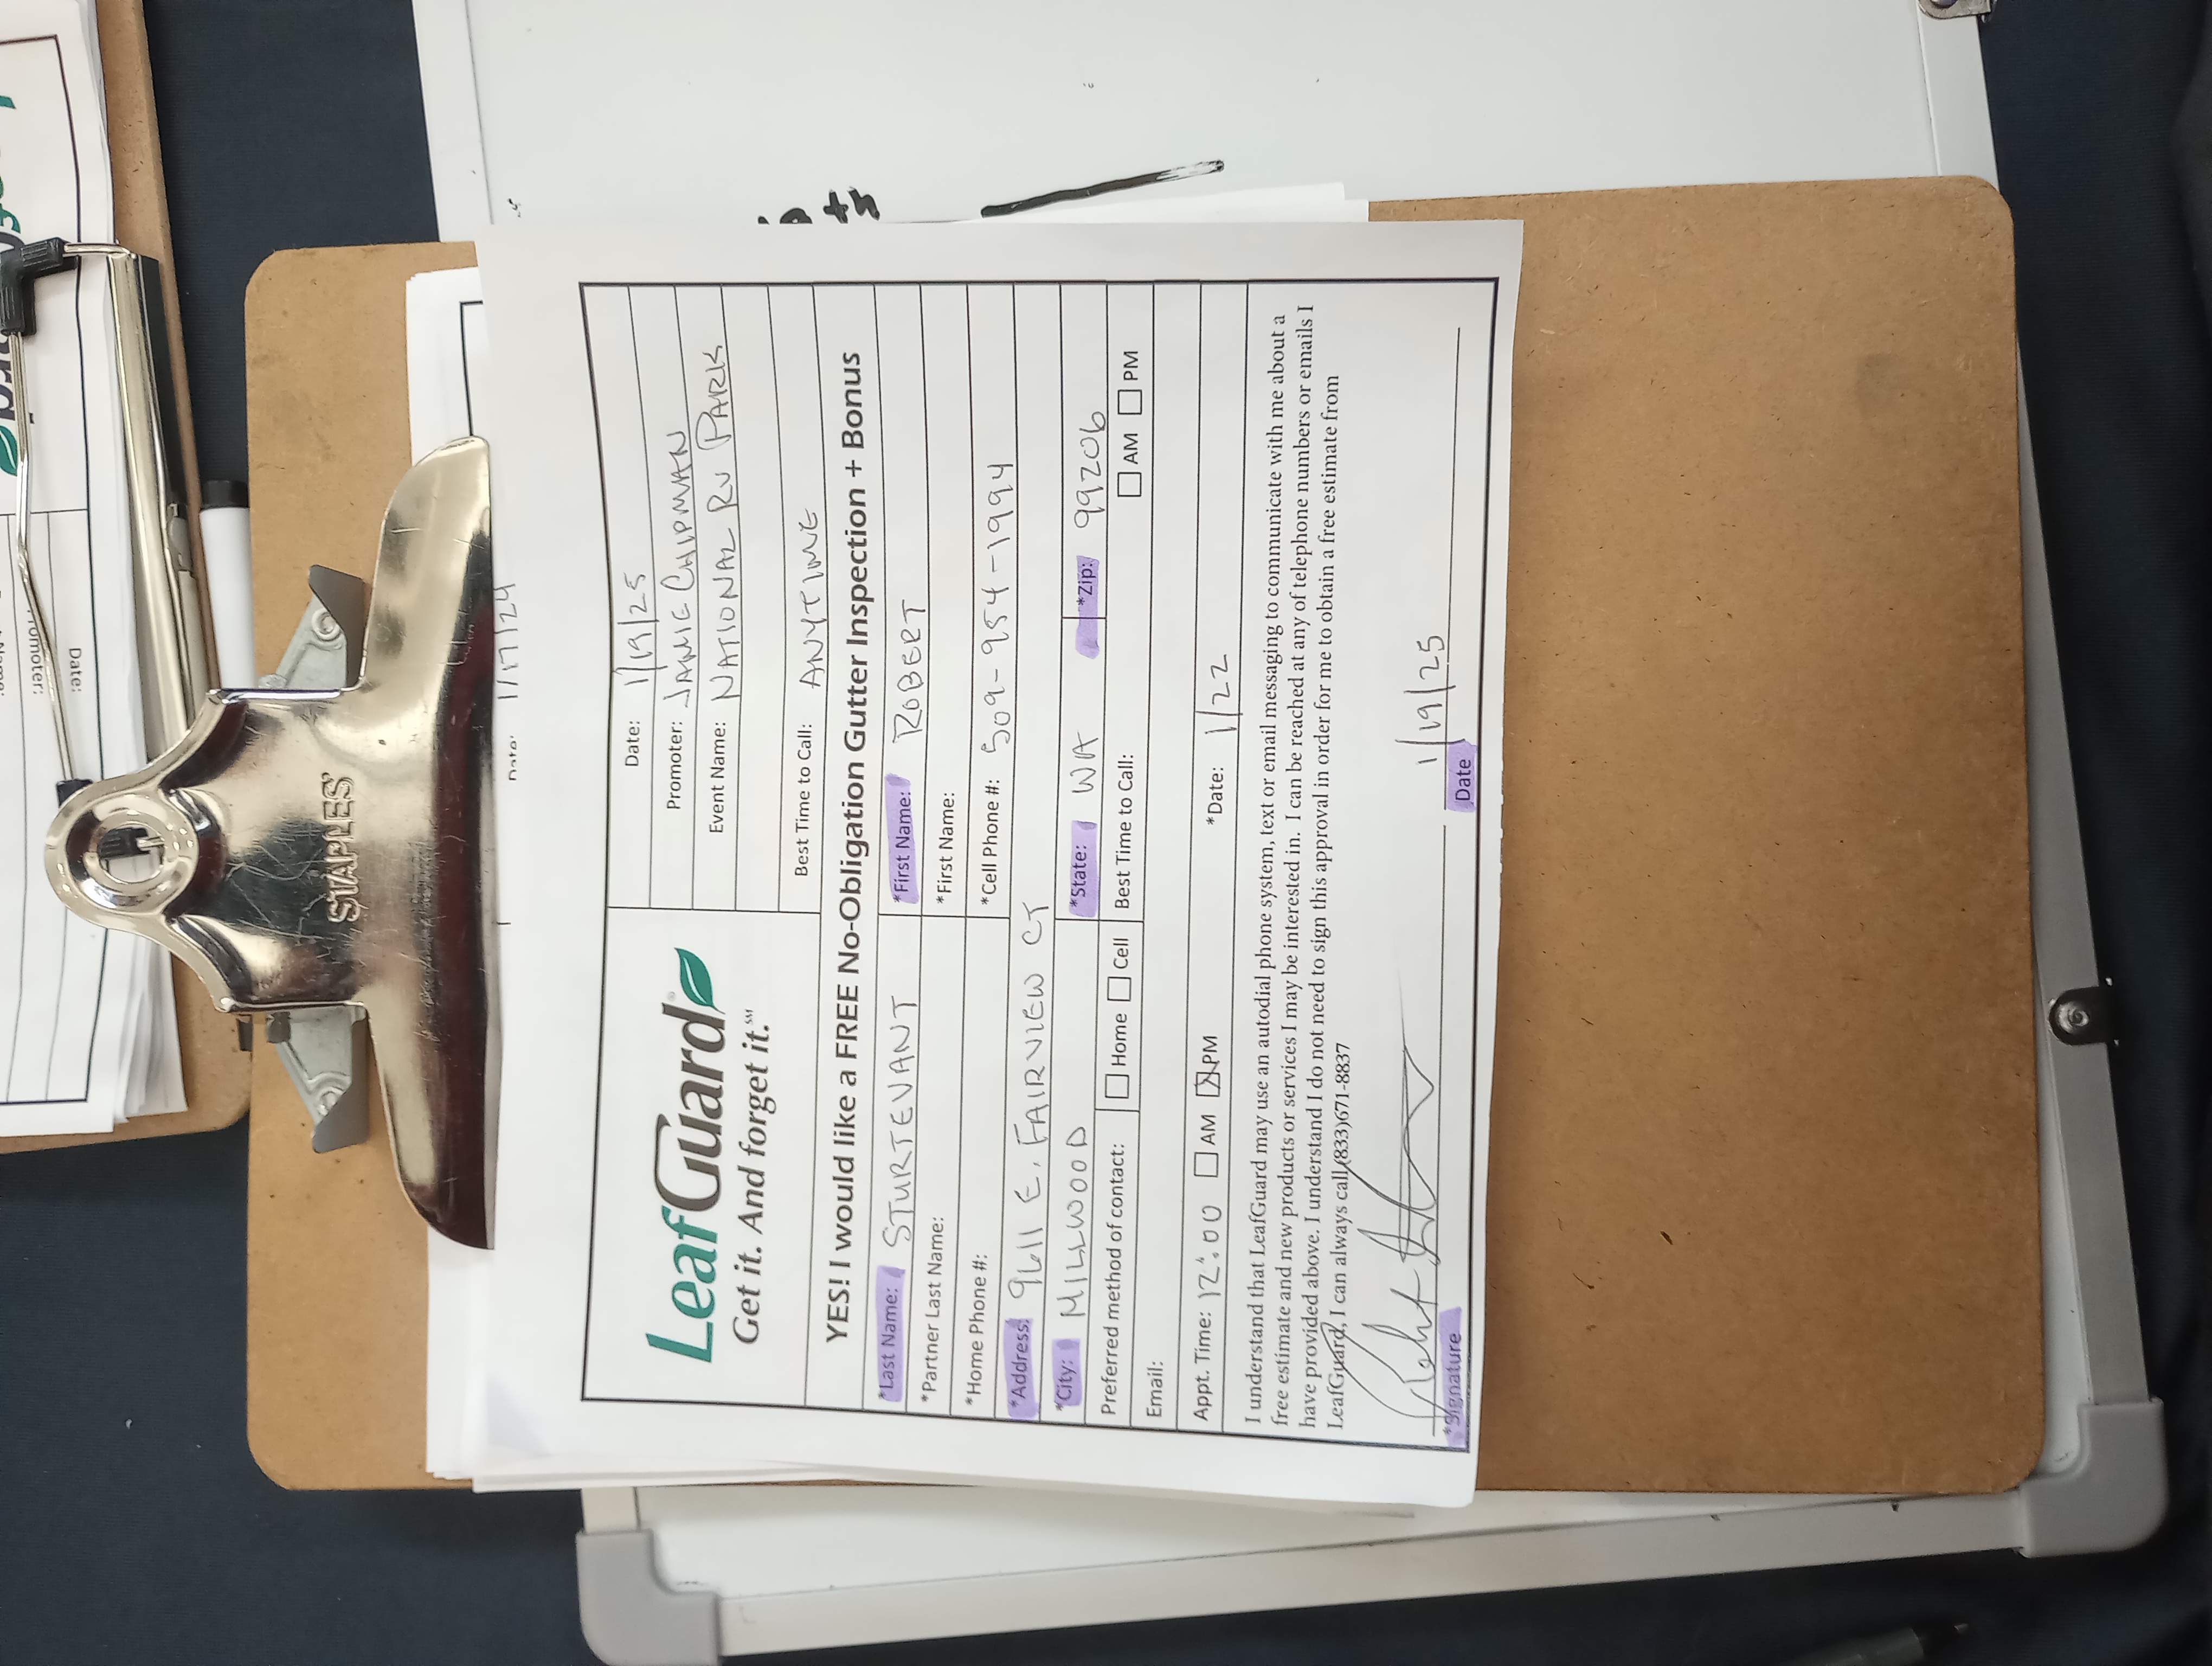 LeafGuard®
Get it. And forget it.℠
Date: 1/19/25
Promoter: JAMIE CHIPMAN
Event Name: NATIONAL RV PARK
Best Time to Call: ANYTIME
YES! I would like a FREE No-Obligation Gutter Inspection + Bonus
*Last Name: STURTEVANT *First Name: ROBERT
*Partner Last Name: *First Name:
*Home Phone #: *Cell Phone #: 509-954-1994
*Address: 9611 E. FAIRVIEW CT
*City: MILLWOOD *State: WA *Zip: 99206
Preferred method of contact: Home Cell Best Time to Call: AM PM
Email:
Appt. Time: 12:00 AM PM *Date: 1/22
I understand that LeafGuard may use an autodial phone system, text or email messaging to communicate with me about a
free estimate and new products or services I may be interested in. I can be reached at any of telephone numbers or emails I
have provided above. I understand I do not need to sign this approval in order for me to obtain a free estimate from
LeafGuard, I can always call (833)671-8837
1/19/25
*Signature Date
STAPLES
Date: 1/17/24
Date: